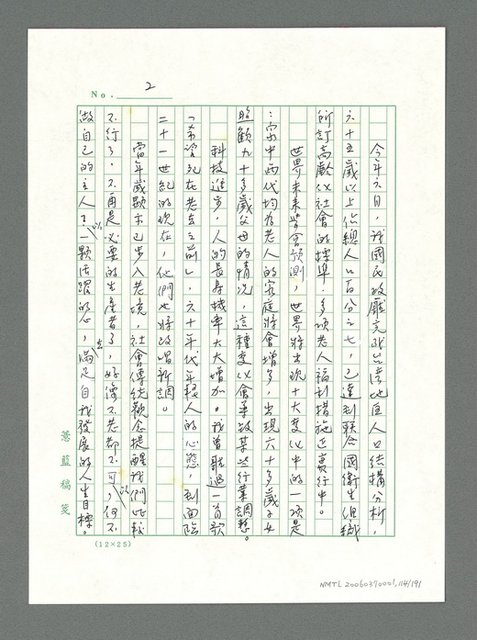 No. 2
今年六月，我國民政廳完成台灣地區人口結構分析，
六十五歲以上佔總人口百分之七，已達到聯合國衛生組織
所訂高齡化社會的標準，多項老人福利措施正實行中。
世界未來學會預測，世界將出現十大變化中的一項是
：家中兩代均為老人的家庭將會增多，出現六十多歲子女
照顧九十多歲父母的情況，這種變化會導致某些行業調整。
科技進步，人的長壽機率大大增加。我曾聽過一首歌
「希望死在老去之前」，六十年代年輕人的心態，到面臨
二十一世紀的現在，他們也將改唱新調。
當年歲顯示已步入老境，社會傳統觀念提醒我們此路
不行了，不再是必要的生產者了，好像不老都不可，何不
做自己的主人，以一顆活躍的心，去滿足自我發展的人生目標。
薔藍稿箋
(12×25)
NMTL20060390001,114/191